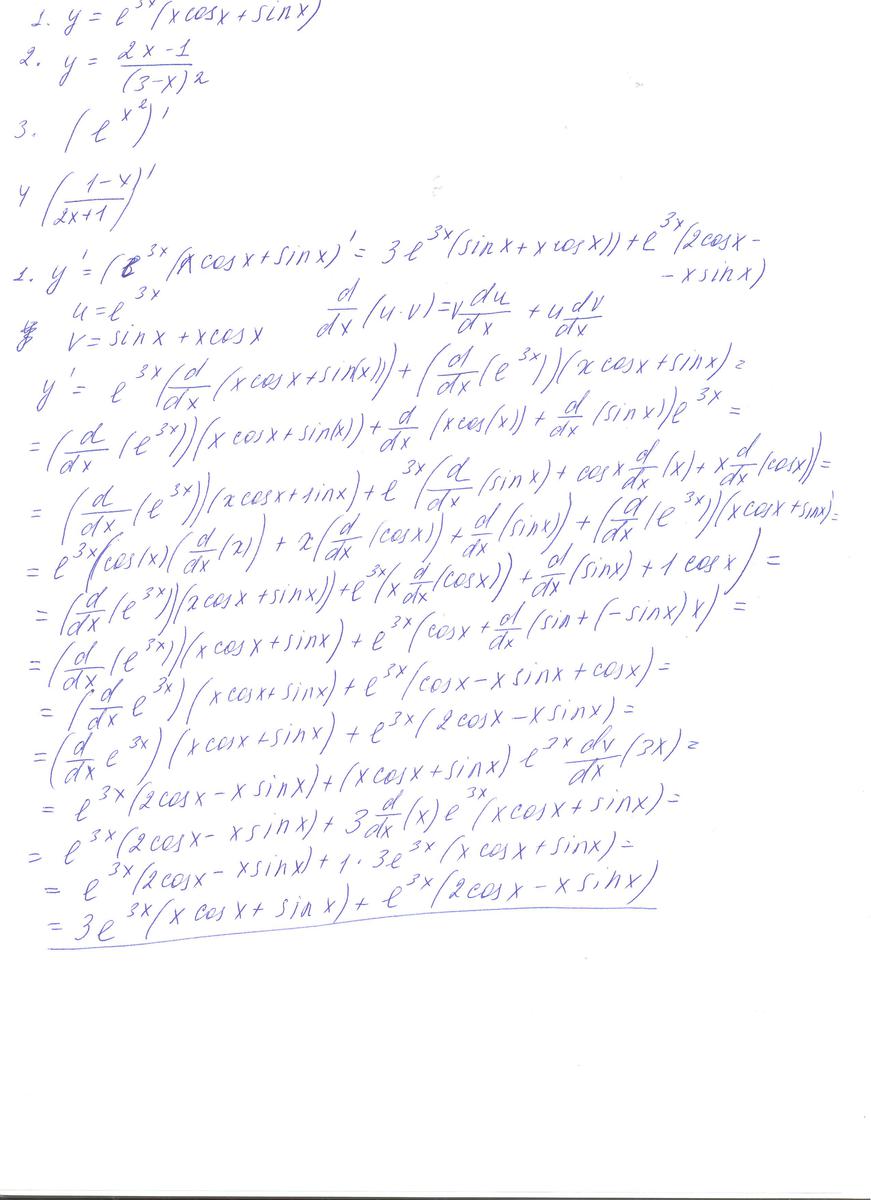 1. y = e^3x (x cos x + sin x)
2. y = (2x - 1)/(3-x)^2
3. (e^x^2)'
4 ((1-x)/(2x+1))'
1. y' = (e^3x (x cos x + sin x)' = 3e^3x (sin x + x cos x)) + e^3x (2cos x -
- x sin x)
u = e^3x
v = sin x + x cos x    d/dx (u·v) = v du/dx + u dv/dx
y' = e^3x (d/dx (x cos x + sin(x))) + (d/dx (e^3x))(x cos x + sin x) =
= (d/dx (e^3x))(x cos x + sin(x)) + d/dx (x cos(x)) + d/dx (sin x)) e^3x =
= (d/dx (e^3x))(x cos x + sin x) + e^3x (d/dx (sin x) + cos x d/dx (x) + x d/dx (cos x)) =
= e^3x (cos(x) (d/dx (x)) + x (d/dx (cos x)) + d/dx (sin x)) + (d/dx (e^3x))(x cos x + sin x)' =
= (d/dx (e^3x))(x cos x + sin x)) + e^3x (x d/dx (cos x)) + d/dx (sin x) + 1 cos x) =
= (d/dx (e^3x))(x cos x + sin x) + e^3x (cos x + d/dx (sin + (-sin x) x) =
= (d/dx e^3x) (x cos x + sin x) + e^3x (cos x - x sin x + cos x) =
= (d/dx e^3x) (x cos x + sin x) + e^3x (2cos x - x sin x) =
= e^3x (2cos x - x sin x) + (x cos x + sin x) e^3x dv/dx (3x) =
= e^3x (2cos x - x sin x) + 3 d/dx (x) e^3x (x cos x + sin x) =
= e^3x (2cos x - x sin x) + 1 · 3e^3x (x cos x + sin x) =
= 3e^3x (x cos x + sin x) + e^3x (2cos x - x sin x)